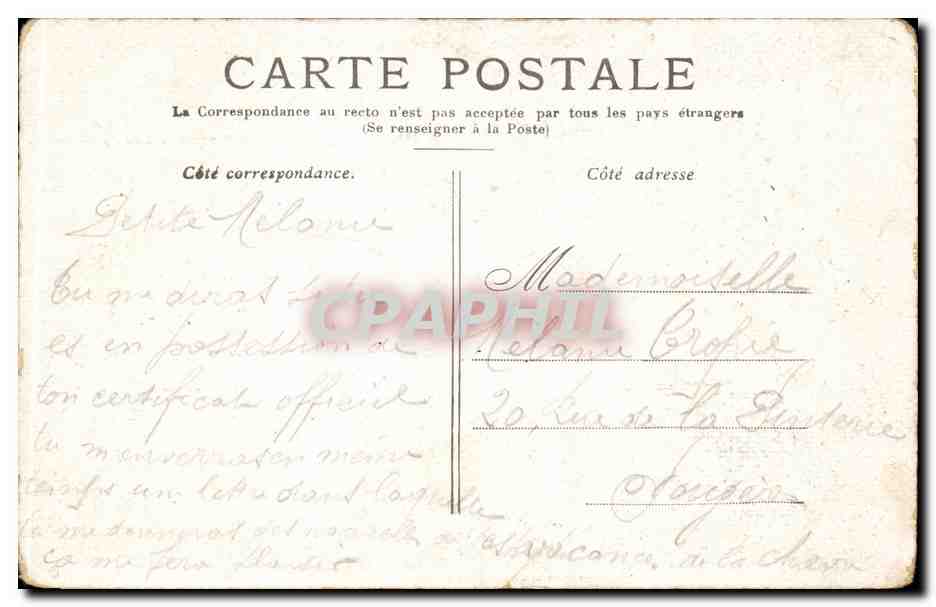 CARTE POSTALE
La Correspondance au recto n'est pas acceptée par tous les pays étrangers
(Se renseigner à la Poste)
Côté correspondance.
Petite Mélanie
tu me diras si tu
es en possession de
ton certificat officiel
tu m'enverras en même
temps un lettre dans laquelle
tu me donneras des nouvelles de tes vacances de la
ça me fera plaisir
Côté adresse
Mademoiselle
Mélanie
20, Rue de la
CPAPHIL